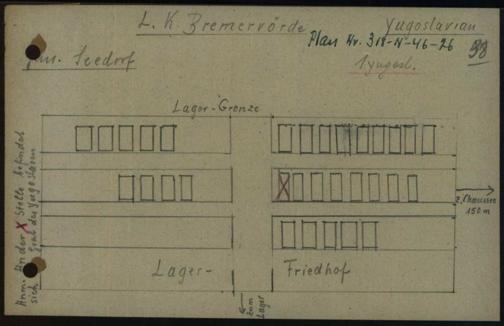 L. K. Bremervörde
Yugoslavian
Plan Nr. 318-N-46-26
98
Gem. Seedorf
1 Yugosl.
Lager-Grenze
X
z. Chaussee
150 m
Lager-
Friedhof
zum
Lager
Anm. An der X Stelle befindet
sich Grab des Yugoslaven